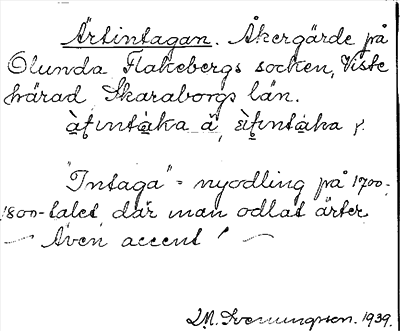 Ärtintagan. Åkergärde på
Olunda Flakebergs socken, Viste
härad Skaraborgs län.
"Intaga" = nyodling på 1700-
1800-talet, där man odlat ärter
— Även accent ' —
1939.